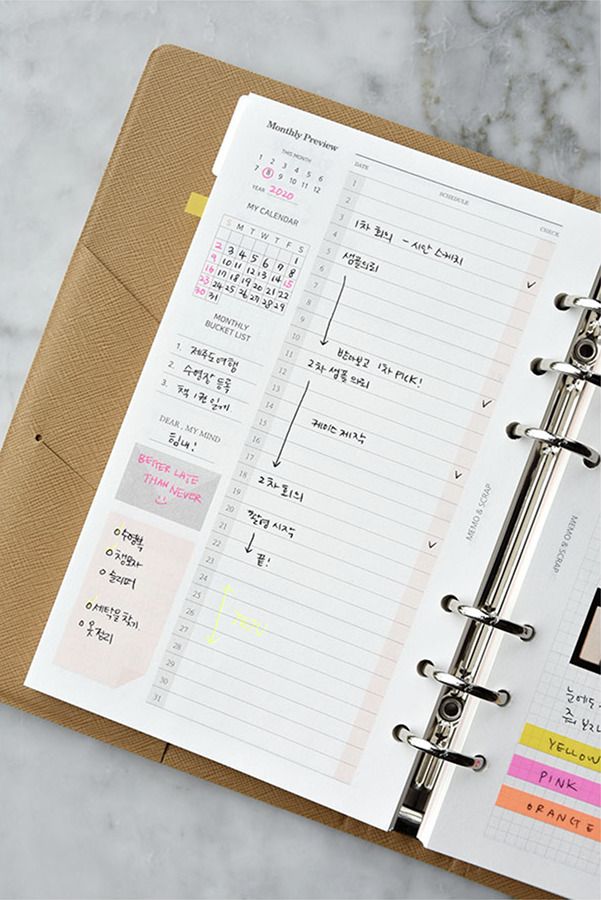 Monthly Preview
THIS MONTH
1 2 3 4 5 6
7 8 9 10 11 12
YEAR 2020
MY CALENDAR
S M T W T F S
1
2 3 4 5 6 7 8
9 10 11 12 13 14 15
16 17 18 19 20 21 22
23 24 25 26 27 28 29
30 31
MONTHLY
BUCKET LIST
1. 제주도여행
2. 수영장 등록
3. 책 1권 읽기
DEAR, MY MIND
힘내!
BETTER LATE
THAN NEVER
수영복
슬리퍼
세탁물 찾기
옷정리
DATE SCHEDULE CHECK
1
2
3
4 1차 회의 - 시안 스케치
5 샘플의뢰
6
7
8
9
10
11 받아보고 1차 PICK!
12 2차 샘플 의뢰
13
14
15 케이스 제작
16
17
18
19 2차 회의
20
21 촬영 시작
22
23 끝!
24
25
26
27
28
29
30
31
MEMO & SCRAP
MEMO & SCRAP
눈에도
YELLOW
PINK
ORANGE